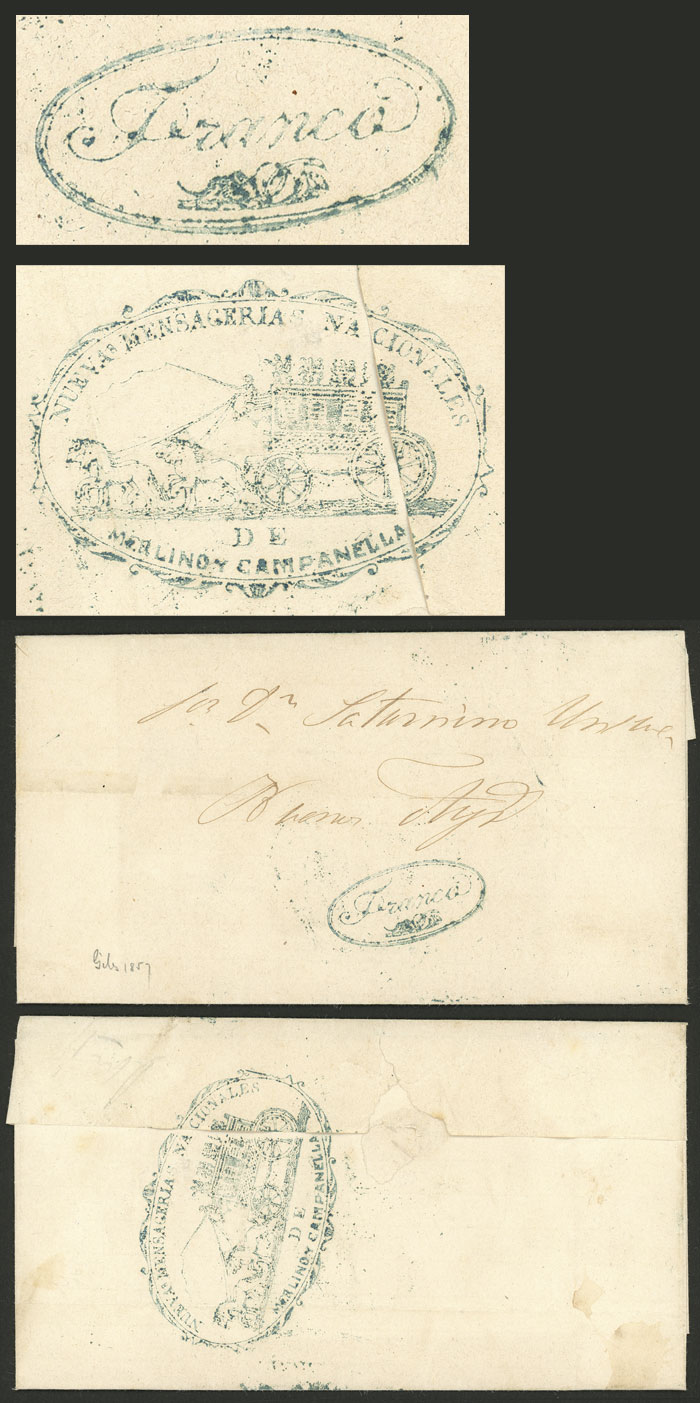 Franco
NUEVAS MENSAGERIAS NACIONALES
DE
MERLINO Y CAMPANELLA
Sor Dn Saturnino Unzue
Buenos Ays
Franco
1857
NUEVAS MENSAGERIAS NACIONALES
DE
MERLINO Y CAMPANELLA